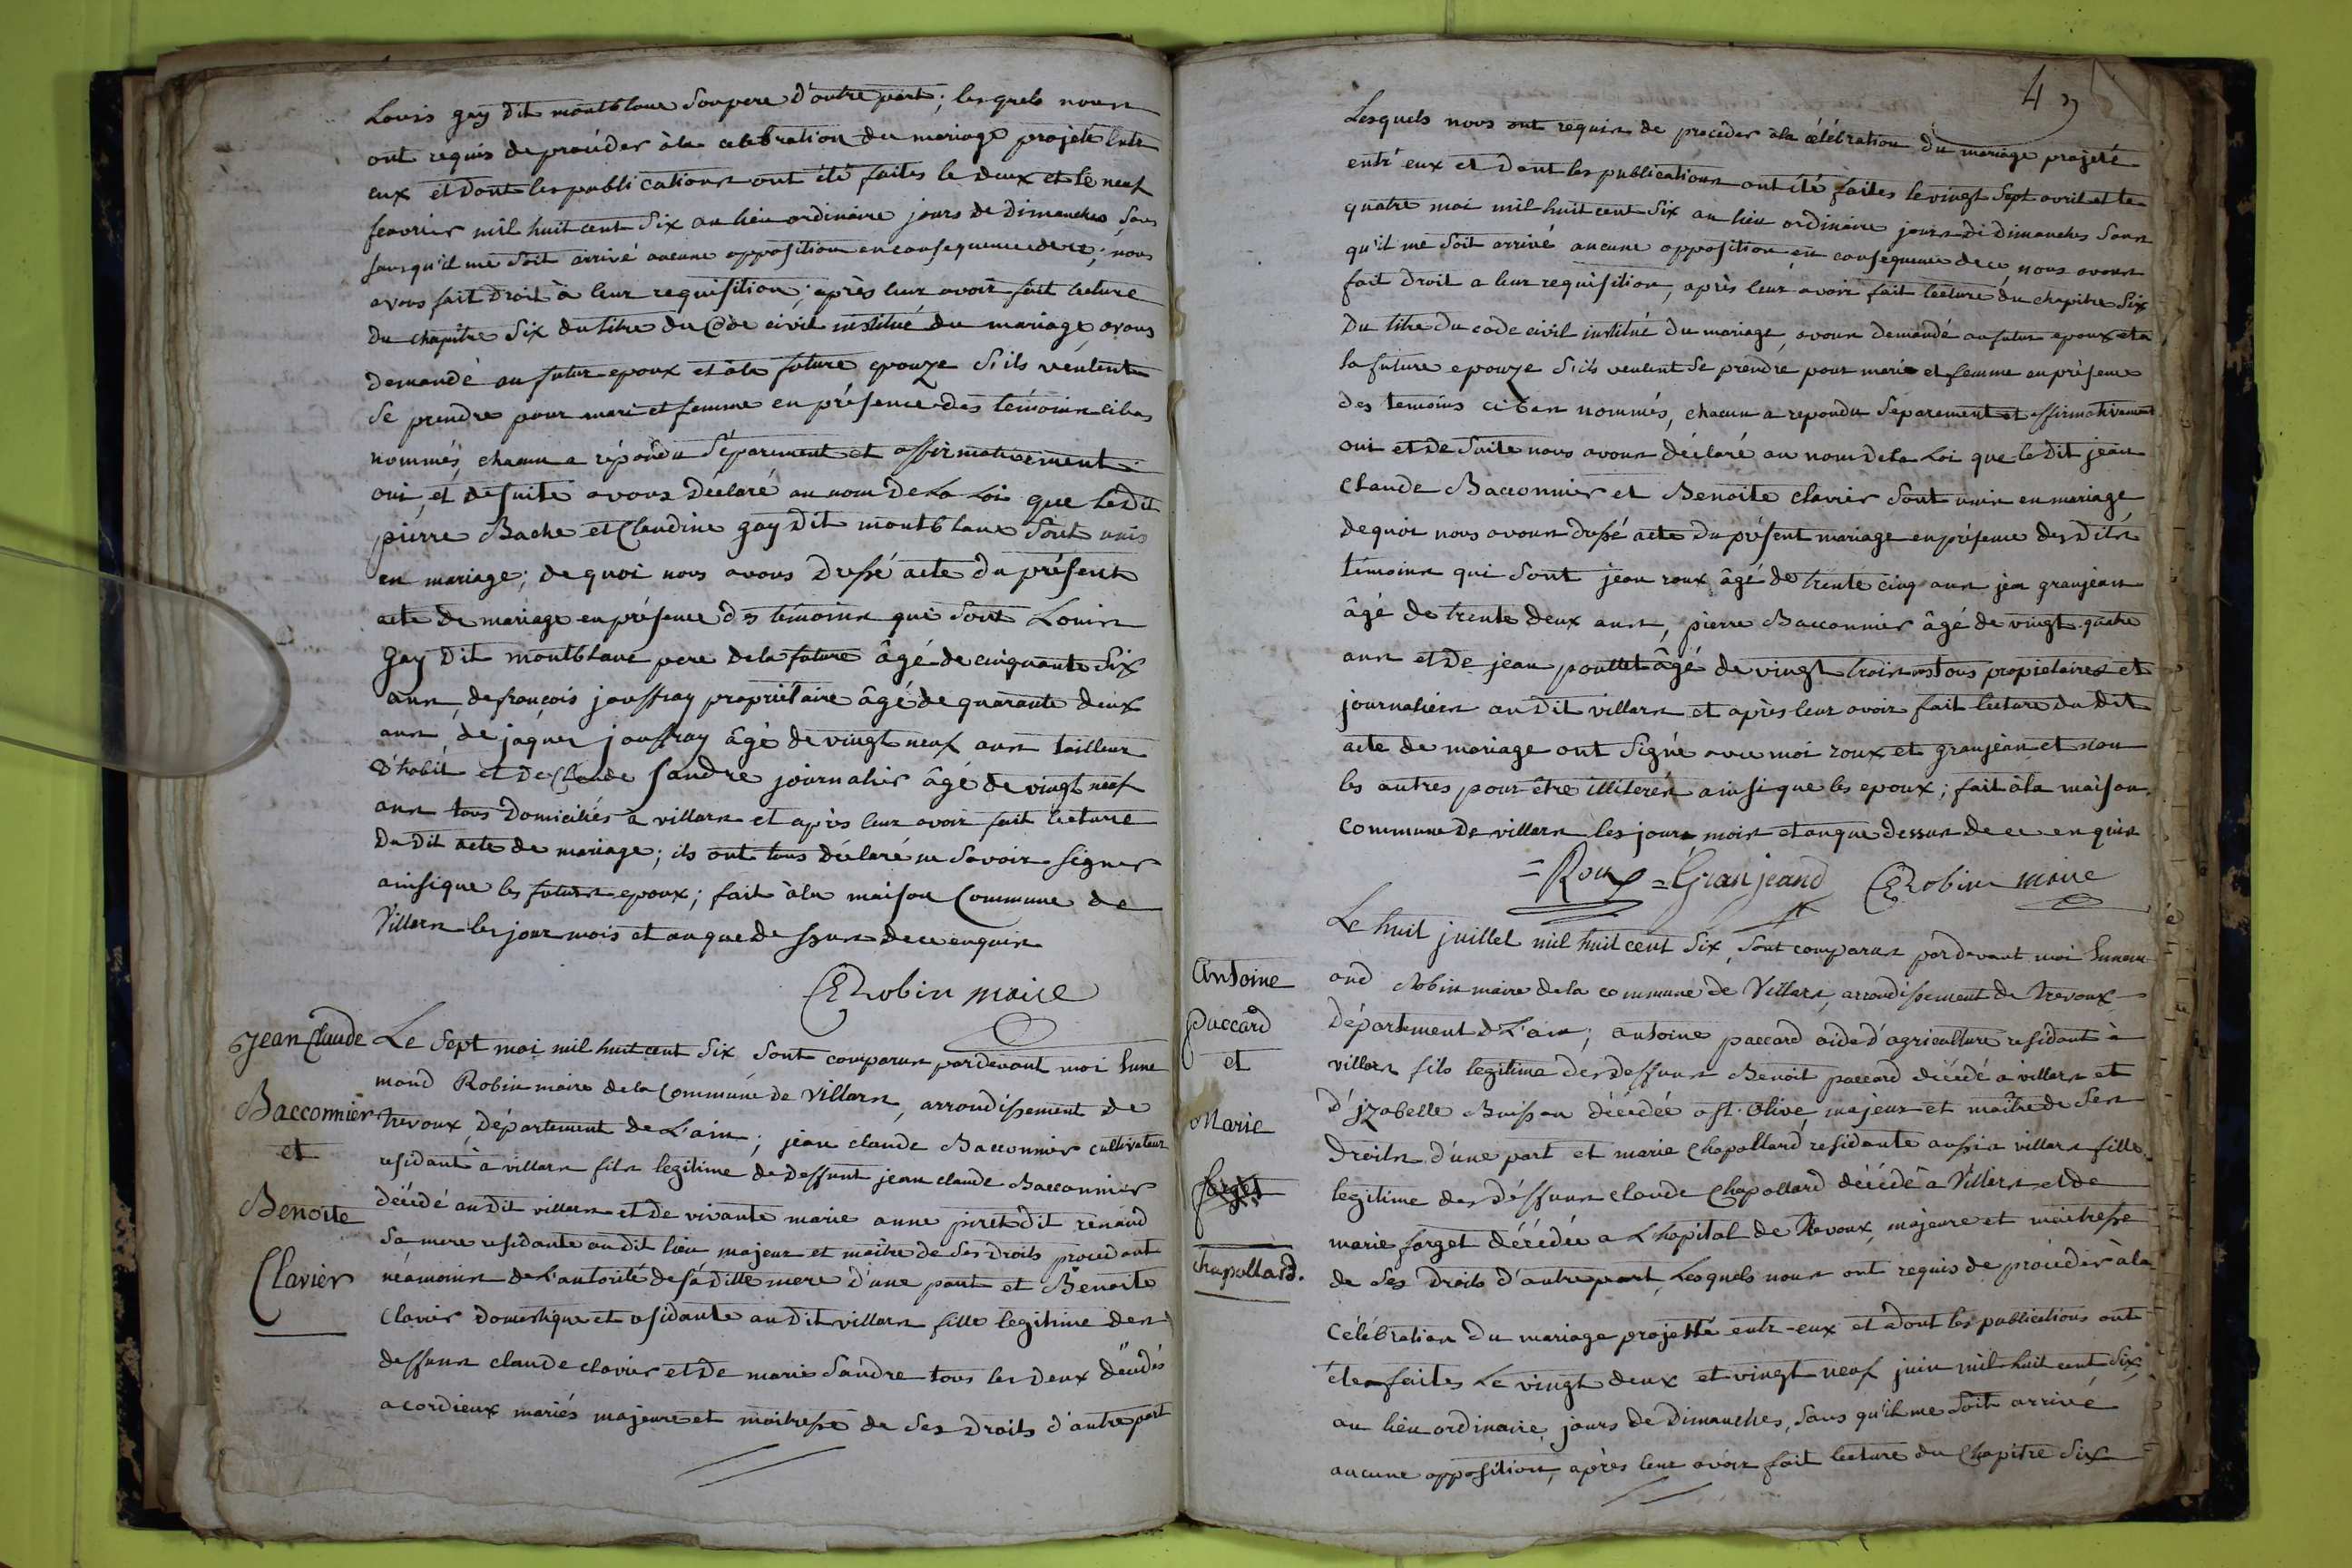 Louis gay dit montblanc Son pere d'autre part; lesquels nous
ont requis de procéder à la celebration du mariage projeté Entre
eux et dont les publications ont été faites le deux et le neuf
fevrier mil huit cent Six au lieu ordinaire jours de Dimanches Sans
Sans qu'il me Soit arrivé aucune opposition en consequence de ce; nous
avons fait droit à leur requisition; après leur avoir fait lecture
du chapitre Six du titre du Code civil institué du mariage, avons
demandé au futur epoux et à la future epouze S'ils veulent
Se prendre pour mari et femme en présence des témoins ci bas
nommés, chacun a répondu Séparement et affirmativement
oui, et de suite avons déclaré au nom de La Loi que Ledit
pierre Bache et Claudine gay dit montblanc Sont unis
en mariage; de quoi nous avons dressé acte du présent
acte de mariage en présence des témoins qui Sont Louis
gay dit montblanc pere de la future âgé de cinquante Six
ans, de françois jouffray propriétaire âgé de quarante deux
ans, de jaques jouffray âgé de vingt neuf ans tailleur
d'habit et de Claude Sandre journalier âgé de vingt neuf
ans tous domiciliés à villars et après leur avoir fait lecture
du dit acte de mariage; ils ont tous déclaré ne Savoir Signer
ainsi que les futurs epoux; fait à la maison Commune de
Villars les jour mois et an que dessus de ce enquis
ERobin maire
Jean Claude
Bacconnier
et
Benoite
Clavier
Le Sept mai mil huit cent Six Sont comparus pardevant moi Enne
mond Robin maire de la Commune de Villars, arrondissement de
trevoux, Département de L'ain; jean claude Bacconnier cultivateur
residant à villars fils legitime de deffunt jean claude Bacconnier
décédé audit villars et de vivante marie anne piret dit renaud
Sa mere residante au dit lieu majeur et maître de Ses droits procedant
néamoins de L'autorité de Sa ditte mere d'une part et Benoite
Clavier domestique et residante au dit villars fille legitime des
deffuns claude clavier et de marie Sandre tous les deux décédés
a cordieux mariés majeure et maitresse de Ses Droits d'autre part
43
Lesquels nous ont requis de procéder à la célébration du mariage projeté
entr'eux et dont les publications ont été faites le vingt Sept avril et le
quatre mai mil huit cent Six au lieu ordinaire jours de dimanches Sans
qu'il me Soit arrivé aucune opposition en consequence de ce, nous avons
fait droit a leur requisition, après leur avoir fait lecture du chapitre Six
du titre du code civil institué du mariage, avons demandé au futur epoux et a
la future epouze S'ils veulent Se prendre pour marie et femme en présence
des temoins ci bas nommés, chacun a repondu Séparement et affirmativement
oui et de Suite nous avons déclaré au nom de la Loi que le dit jean
Claude Bacconnier et Benoite clavier Sont unis en mariage
de quoi nous avons dressé acte du présent mariage en présence des dits
témoins qui Sont jean roux âgé de trente cinq ans jea granjean
âgé de trente deux ans, pierre Bacconnier âgé de vingt quatre
ans et de jean poullet âgé de vingt trois ans tous propietaires et
journaliers au dit villars et après leur avoir fait lecture du dit
acte de mariage ont Signé avec moi roux et granjean et non
les autres pour être illiterés ainsi que les epoux; fait à la maison
Commune de villars les jours mois et an que dessus de ce enquis
=Roux =Granjeand ERobin maire
Antoine
paccard
et
Marie
forget
Chapollard.
Le huit juillet mil huit cent Six, Sont comparus pardevant moi Ennem
ond Robin maire de la commune de Villars, arrondissement de trevoux
Département de L'ain; antoine paccard aide d'agriculture residant à
villars fils legitime des deffuns Benoit paccard décédé a villars et
d'jzabelle Buisson décédée a St. Olive, majeur et maître de Ses
droits d'une part et marie Chapollard residante aussi a villars fille
legitime des déffuns claude Chapollard décédé a Villars et de
marie forget décédée a L'hopital de Trevoux, majeure et maitresse
de Ses Droits d'autre part, Lesquels nous ont requis de procéder à la
Célébration du mariage projetté entr-eux et dont les publications ont
étée faites Le vingt deux et vingt neuf juin mil huit cent Six
au lieu ordinaire, jours de Dimanches, Sans qu'il me Soit arrivé
aucune opposition, après leur avoir fait lecture du Chapitre Six